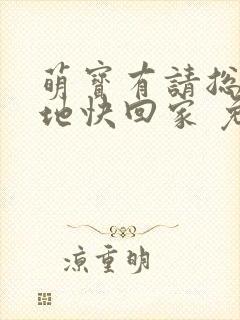 萌寶有請総
地快回家
涼重明